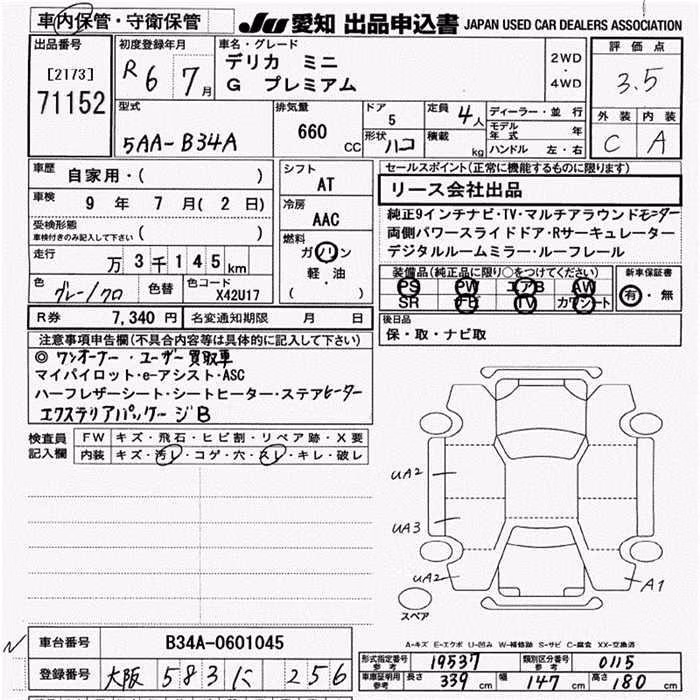 車内保管・守衛保管
JU 愛知 出品申込書 JAPAN USED CAR DEALERS ASSOCIATION
出品番号
[2173]
71152
初度登録年月
R 6 7 月
車名・グレード
デリカ ミニ
G プレミアム
2WD
・
4WD
評価点
3.5
外装 内装
C A
型式
5AA-B34A
排気量
660 CC
ドア
5
形状 ハコ
定員 4人
積載 kg
ディーラー・並行
モデル年式 年
ハンドル 左・右
車歴 自家用・( )
車検 9 年 7 月( 2 日)
受検形態
車検付きのみ記入して下さい ( )
走行 万 3 千 1 4 5 km
色 グレー/クロ 色替 色コード X42U17
シフト
AT
冷房
AAC
燃料
ガソリン
軽・油
( )
セールスポイント(正常に機能するものに限ります)
リース会社出品
純正9インチナビ・TV・マルチアラウンドモニター
両側パワースライドドア・Rサーキュレーター
デジタルルームミラー・ルーフレール
装備品(純正品に限り○をつけてください)
PS PW エアB AW
SR ナビ TV カワシート
新車保証書
有・無
R券 7,340 円 名変通知期限 月 日
後日品
保・取・ナビ取
注意事項申告欄(不具合内容等は具体的に記入して下さい)
◎ ワンオーナー・ユーザー買取車
マイパイロット・e-アシスト・ASC
ハーフレザーシート・シートヒーター・ステアヒーター
エクステリアパッケージB
検査員記入欄
FW キズ・飛石・ヒビ割・リペア跡・X要
内装 キズ・汚レ・コゲ・穴・スレ・キレ・破レ
UA2
UA3
UA2
A1
スペア
A-キズ E-エクボ U-凹み W-補修跡 S-サビ C-腐食 XX-交換済
車台番号 B34A-0601045
登録番号 大阪 583 に 256
型式指定番号 参考 19537 類別区分番号 参考 0115
車庫証明用 参考 長さ 339 cm 幅 147 cm 高さ 180 cm